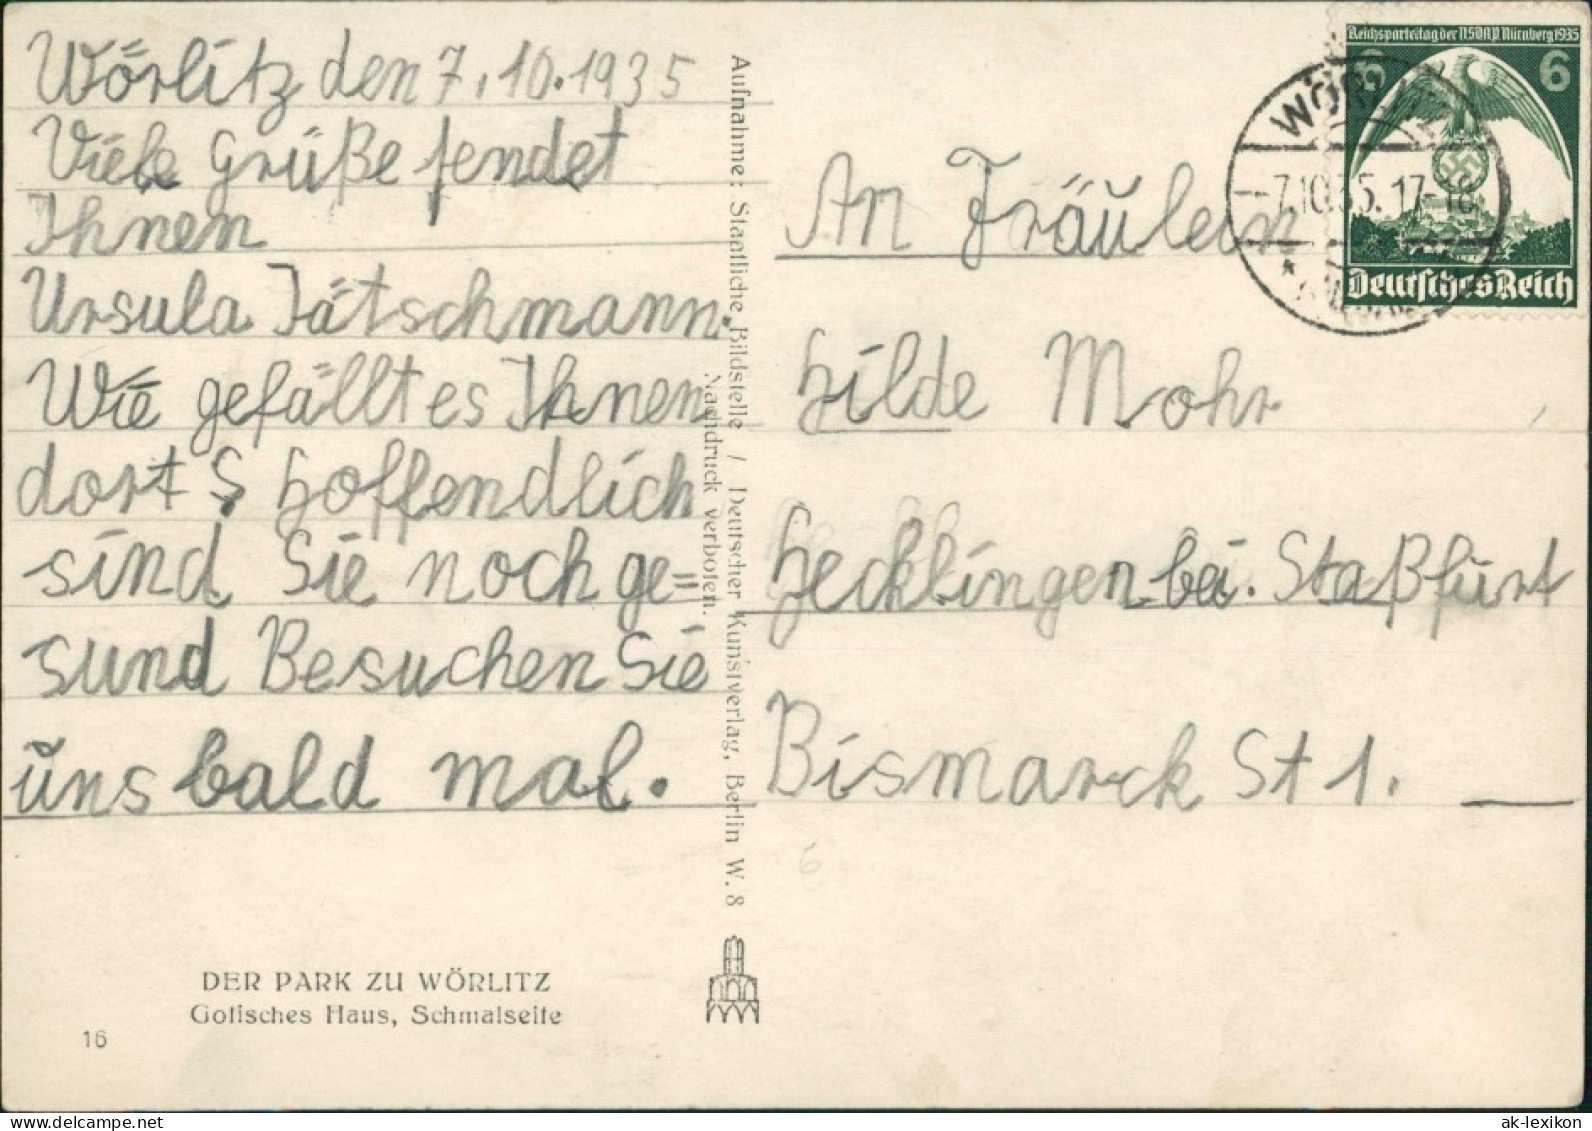 Wörlitz den 7.10.1935
Viele Grüße sendet
Ihnen
Ursula Tätschmann.
Wie gefällt es Ihnen
dort? Hoffendlich
sind Sie noch ge=
sund Besuchen Sie
uns bald mal.
DER PARK ZU WÖRLITZ
Gotisches Haus, Schmalseite
16
Aufnahme: Staatliche Bildstelle / Deutscher Kunstverlag, Berlin W. 8
Nachdruck verboten.
Reichsparteitag der NSDAP Nürnberg 1935
6 6
Deutsches Reich
-7.10.35.17-18
An Fräulein
Hilde Mohr
Hecklingen bei. Staßfurt
Bismarck St 1.
6
ak-lexikon